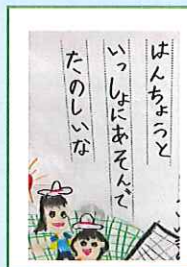 はんちょうと
いっしょにあそんで
たのしいな